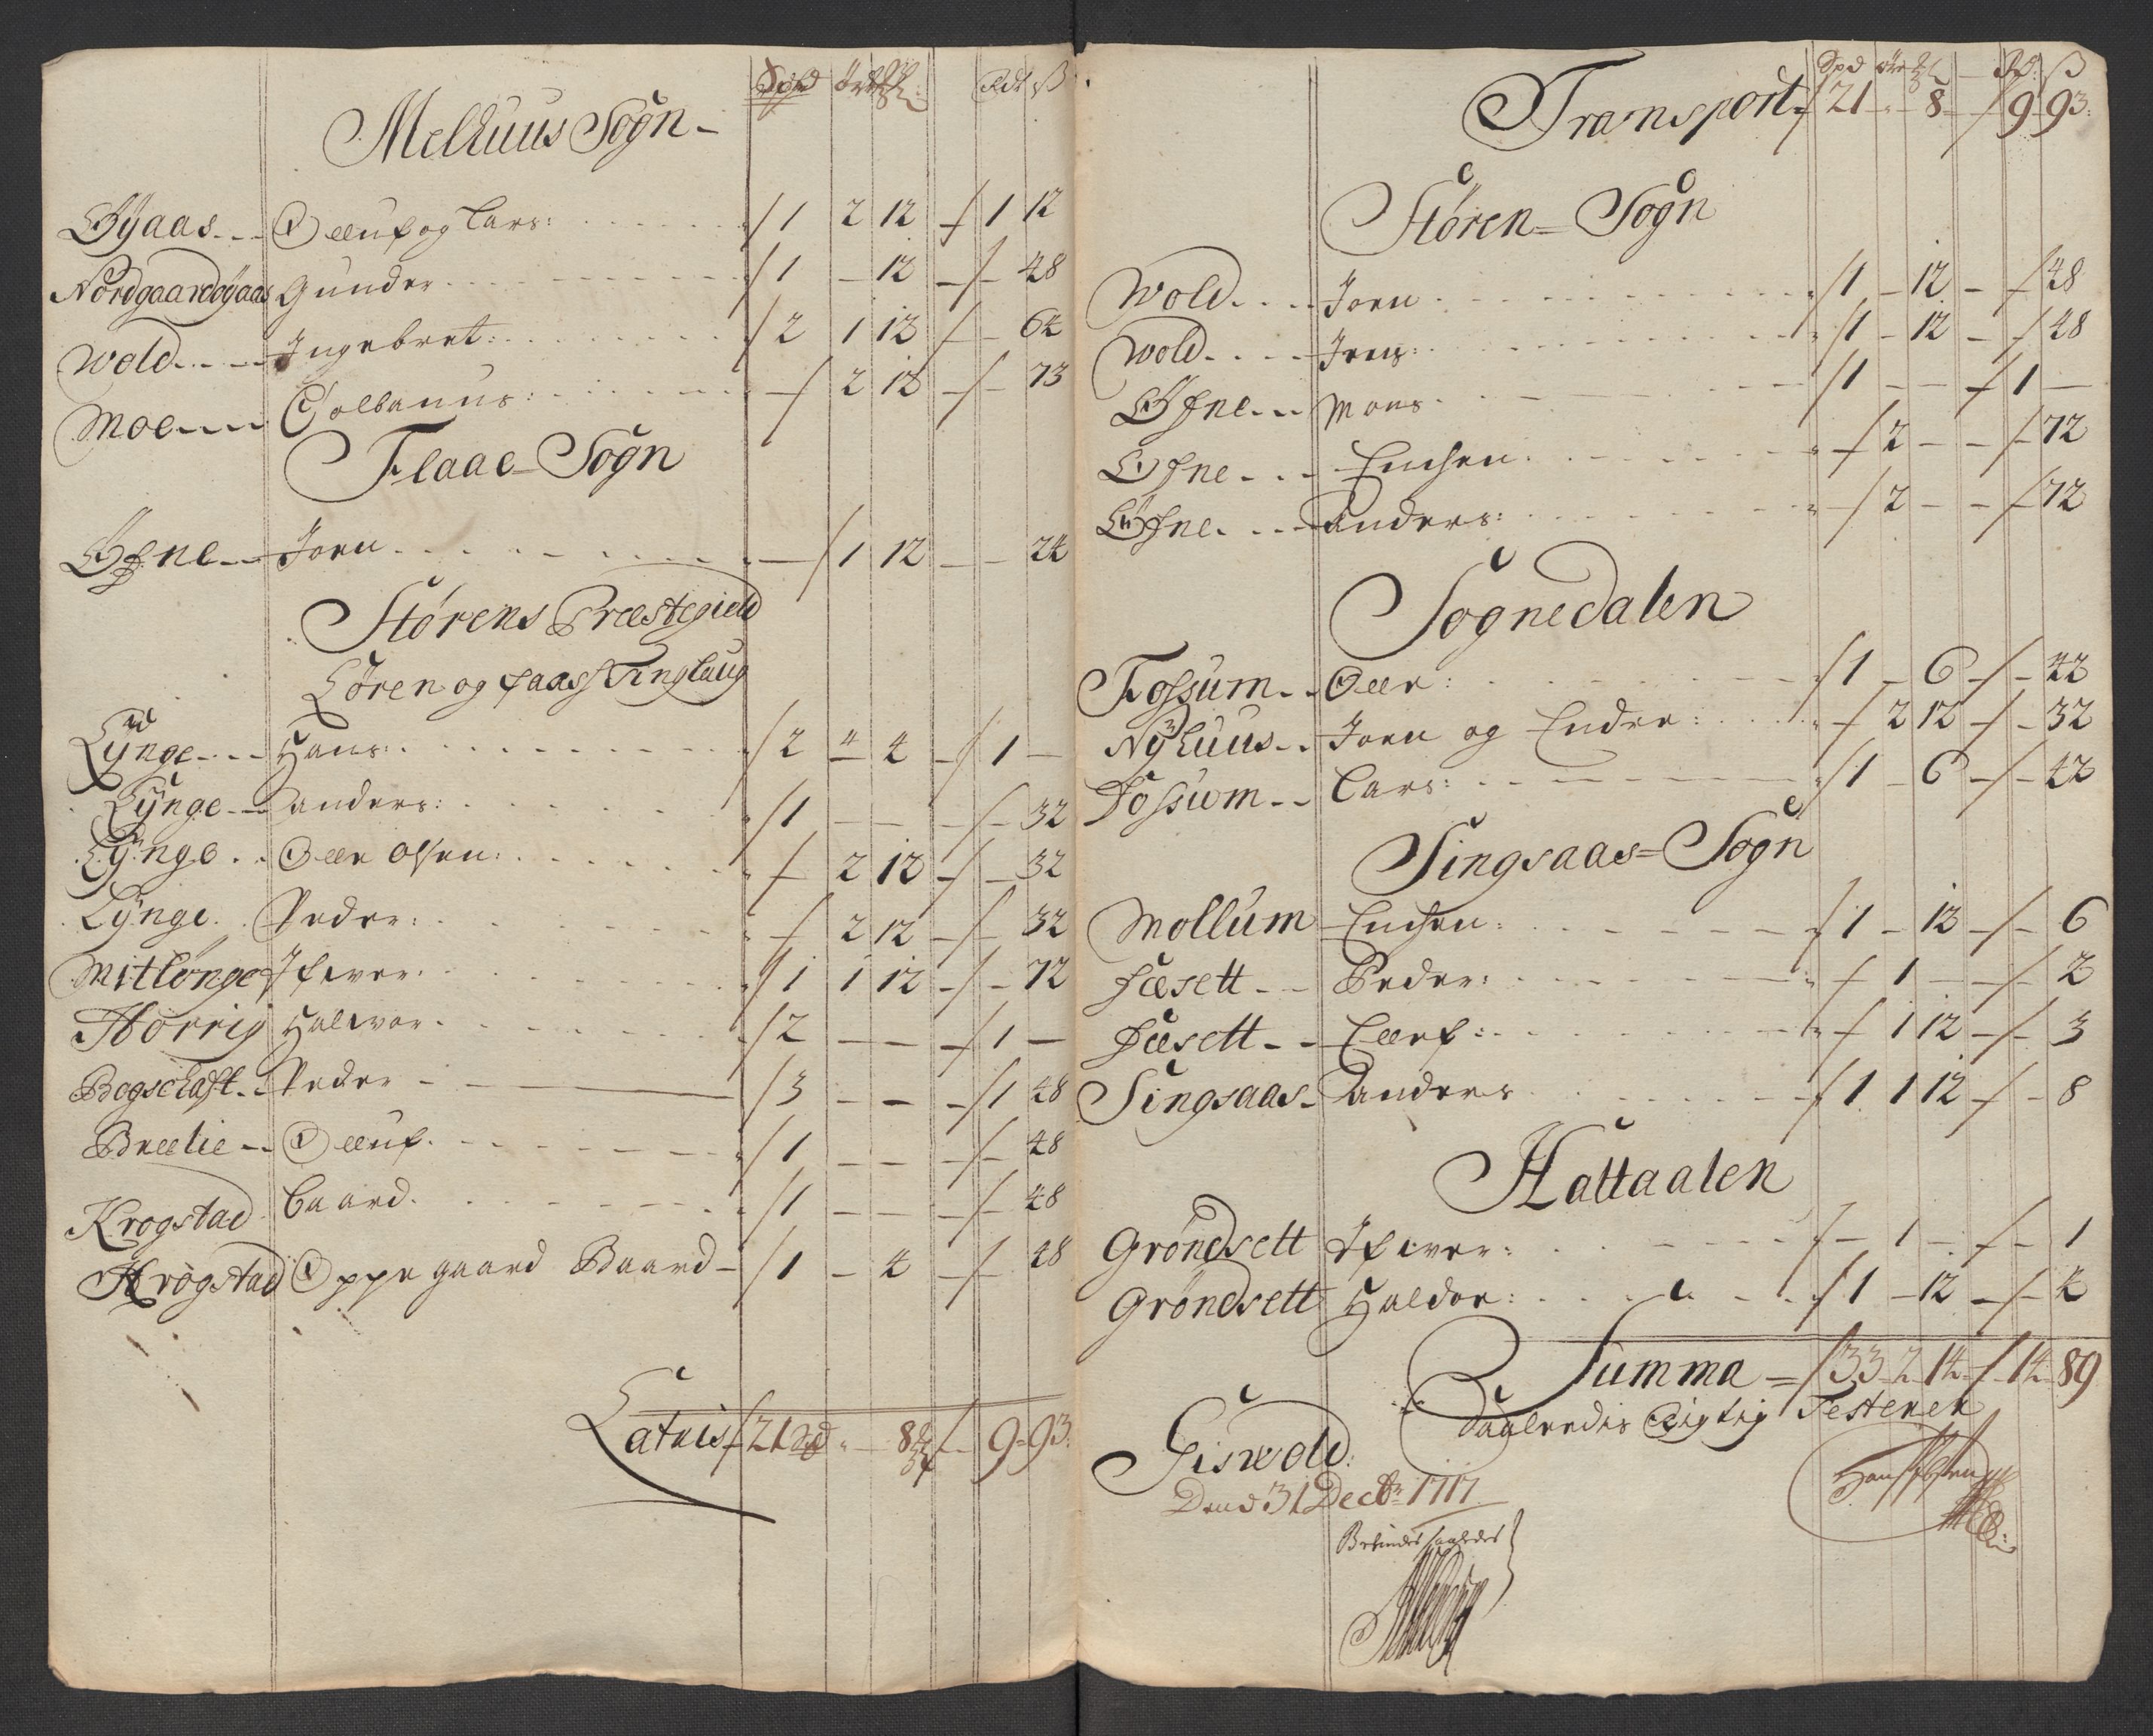 Spd ört ℔ Rdr ß
Melhuus Sogn
Øyaas Oeluf og Lars: 1 2 12 1 12
Nordgaardøyaas Gunder 1 - 12 - 48
Wold Ingebret: 2 1 12 - 64
Moe Colbanus: - 2 12 - 73
Flaae Sogn
Øfne Joen - 1 12 - 24
Störens Præstegield
Sören og Haas Tinglaug
Lynge Hans: 2 " 4 1 -
Lynge Anders: 1 - - - 32
Lynge Olle Olsen: - 2 12 - 32
Lynge Peder: - 2 12 - 32
Mitlönge Ifwer: 1 1 12 - 72
Horrig Halwor 2 - - 1 -
Bogschaft Peder 3 - - 1 48
Brælie Oeluf 1 - - - 48
Krogstad Baard 1 - - - 48
Krogstad Oppegaard Baard 1 - 4 - 48
Lateris 21 8 9 93
Spd ört ℔ Rd: ß
Transport 21 - 8 - 9 93
Stören Sogn
Wold Joen 1 - 12 - 48
Wold Jens: 1 - 12 - 48
Øfne Mons 1 - - 1 -
Øfne Enchen - 2 - - 72
Øfne Anders: - 2 - - 72
Sognedalen
Fossum Olle: 1 - 6 - 42
Nyhuus Joen og Endre: - 2 12 - 32
Fossum Lars: 1 - 6 - 42
Singsaas Sogn
Mollum Enchen: 1 - 12 - 6
Fæsett Peder: - 1 - - 2
Fæsett Ellef: - 1 12 - 3
Singsaas Anders 1 1 12 - 8
Hattaalen
Gröndsett Ifwer: - 1 - - 1
Gröndsett Haldor: 1 - 12 - 4
Summa 33 2 14 14 89
Saaledis Rigtig Testerer
Giswold:
Dend 31 Decbr 1717
Befindes saaledes